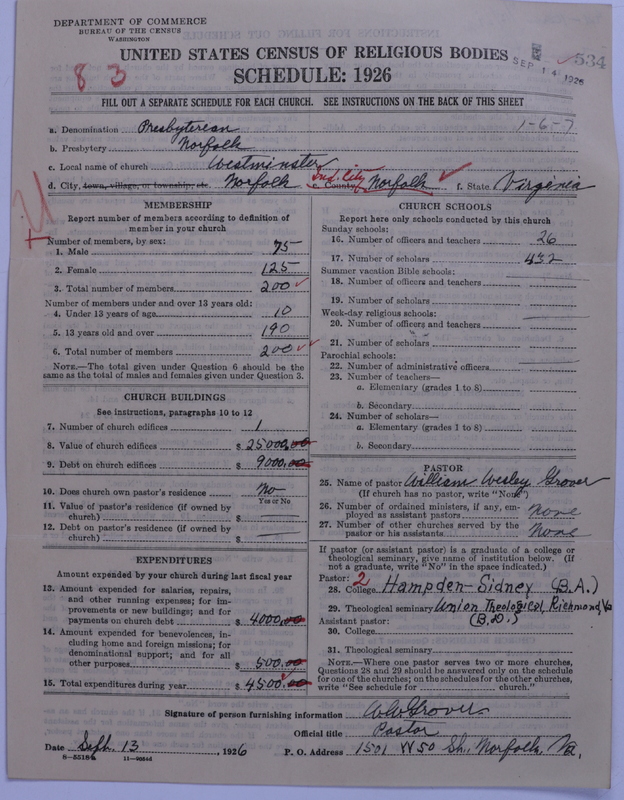 DEPARTMENT OF COMMERCE
BUREAU OF THE CENSUS
WASHINGTON
8 3
UNITED STATES CENSUS OF RELIGIOUS BODIES
SCHEDULE: 1926
SEP 14 1926
534
FILL OUT A SEPARATE SCHEDULE FOR EACH CHURCH. SEE INSTRUCTIONS ON THE BACK OF THIS SHEET
a. Denomination Presbyterean 1-6-7
b. Presbytery Norfolk
c. Local name of church Westminster
d. City, town, village, or township, etc. Norfolk Ind. City e. County Norfolk f. State Virginia
MEMBERSHIP
Report number of members according to definition of
member in your church
Number of members, by sex:
1. Male 75
2. Female 125
3. Total number of members 200
Number of members under and over 13 years old:
4. Under 13 years of age 10
5. 13 years old and over 190
6. Total number of members 200
NOTE.—The total given under Question 6 should be the
same as the total of males and females given under Question 3.
CHURCH BUILDINGS
See instructions, paragraphs 10 to 12
7. Number of church edifices 1
8. Value of church edifices $ 25000.00
9. Debt on church edifices $ 9000.00
10. Does church own pastor's residence No
Yes or No
11. Value of pastor's residence (if owned by
church) $
12. Debt on pastor's residence (if owned by
church) $
EXPENDITURES
Amount expended by your church during last fiscal year
13. Amount expended for salaries, repairs,
and other running expenses; for im-
provements or new buildings; and for
payments on church debt $ 4000.00
14. Amount expended for benevolences, in-
cluding home and foreign missions; for
denominational support; and for all
other purposes $ 500.00
15. Total expenditures during year $ 4500.00
CHURCH SCHOOLS
Report here only schools conducted by this church
Sunday schools:
16. Number of officers and teachers 26
17. Number of scholars 432
Summer vacation Bible schools:
18. Number of officers and teachers
19. Number of scholars
Week-day religious schools:
20. Number of officers and teachers
21. Number of scholars
Parochial schools:
22. Number of administrative officers
23. Number of teachers—
a. Elementary (grades 1 to 8)
b. Secondary
24. Number of scholars—
a. Elementary (grades 1 to 8)
b. Secondary
PASTOR
25. Name of pastor William Wesley Grover
(If church has no pastor, write "None")
26. Number of ordained ministers, if any, em-
ployed as assistant pastors None
27. Number of other churches served by the
pastor or his assistants None
If pastor (or assistant pastor) is a graduate of a college or
theological seminary, give name of institution below. (If
not a graduate, write "No" in the space indicated.)
Pastor: 2
28. College Hampden-Sidney (B.A.)
29. Theological seminary Union Theological, Richmond, Va
Assistant pastor: (B.D.)
30. College
31. Theological seminary
NOTE.—Where one pastor serves two or more churches,
Questions 28 and 29 should be answered only on the schedule
for one of the churches; on the schedules for the other churches,
write "See schedule for church."
Signature of person furnishing information W W Grover
Official title Pastor
Date Sept. 13, 1926 P. O. Address 1501 W 50 St., Norfolk, Va.
8—5518a 11—9654d